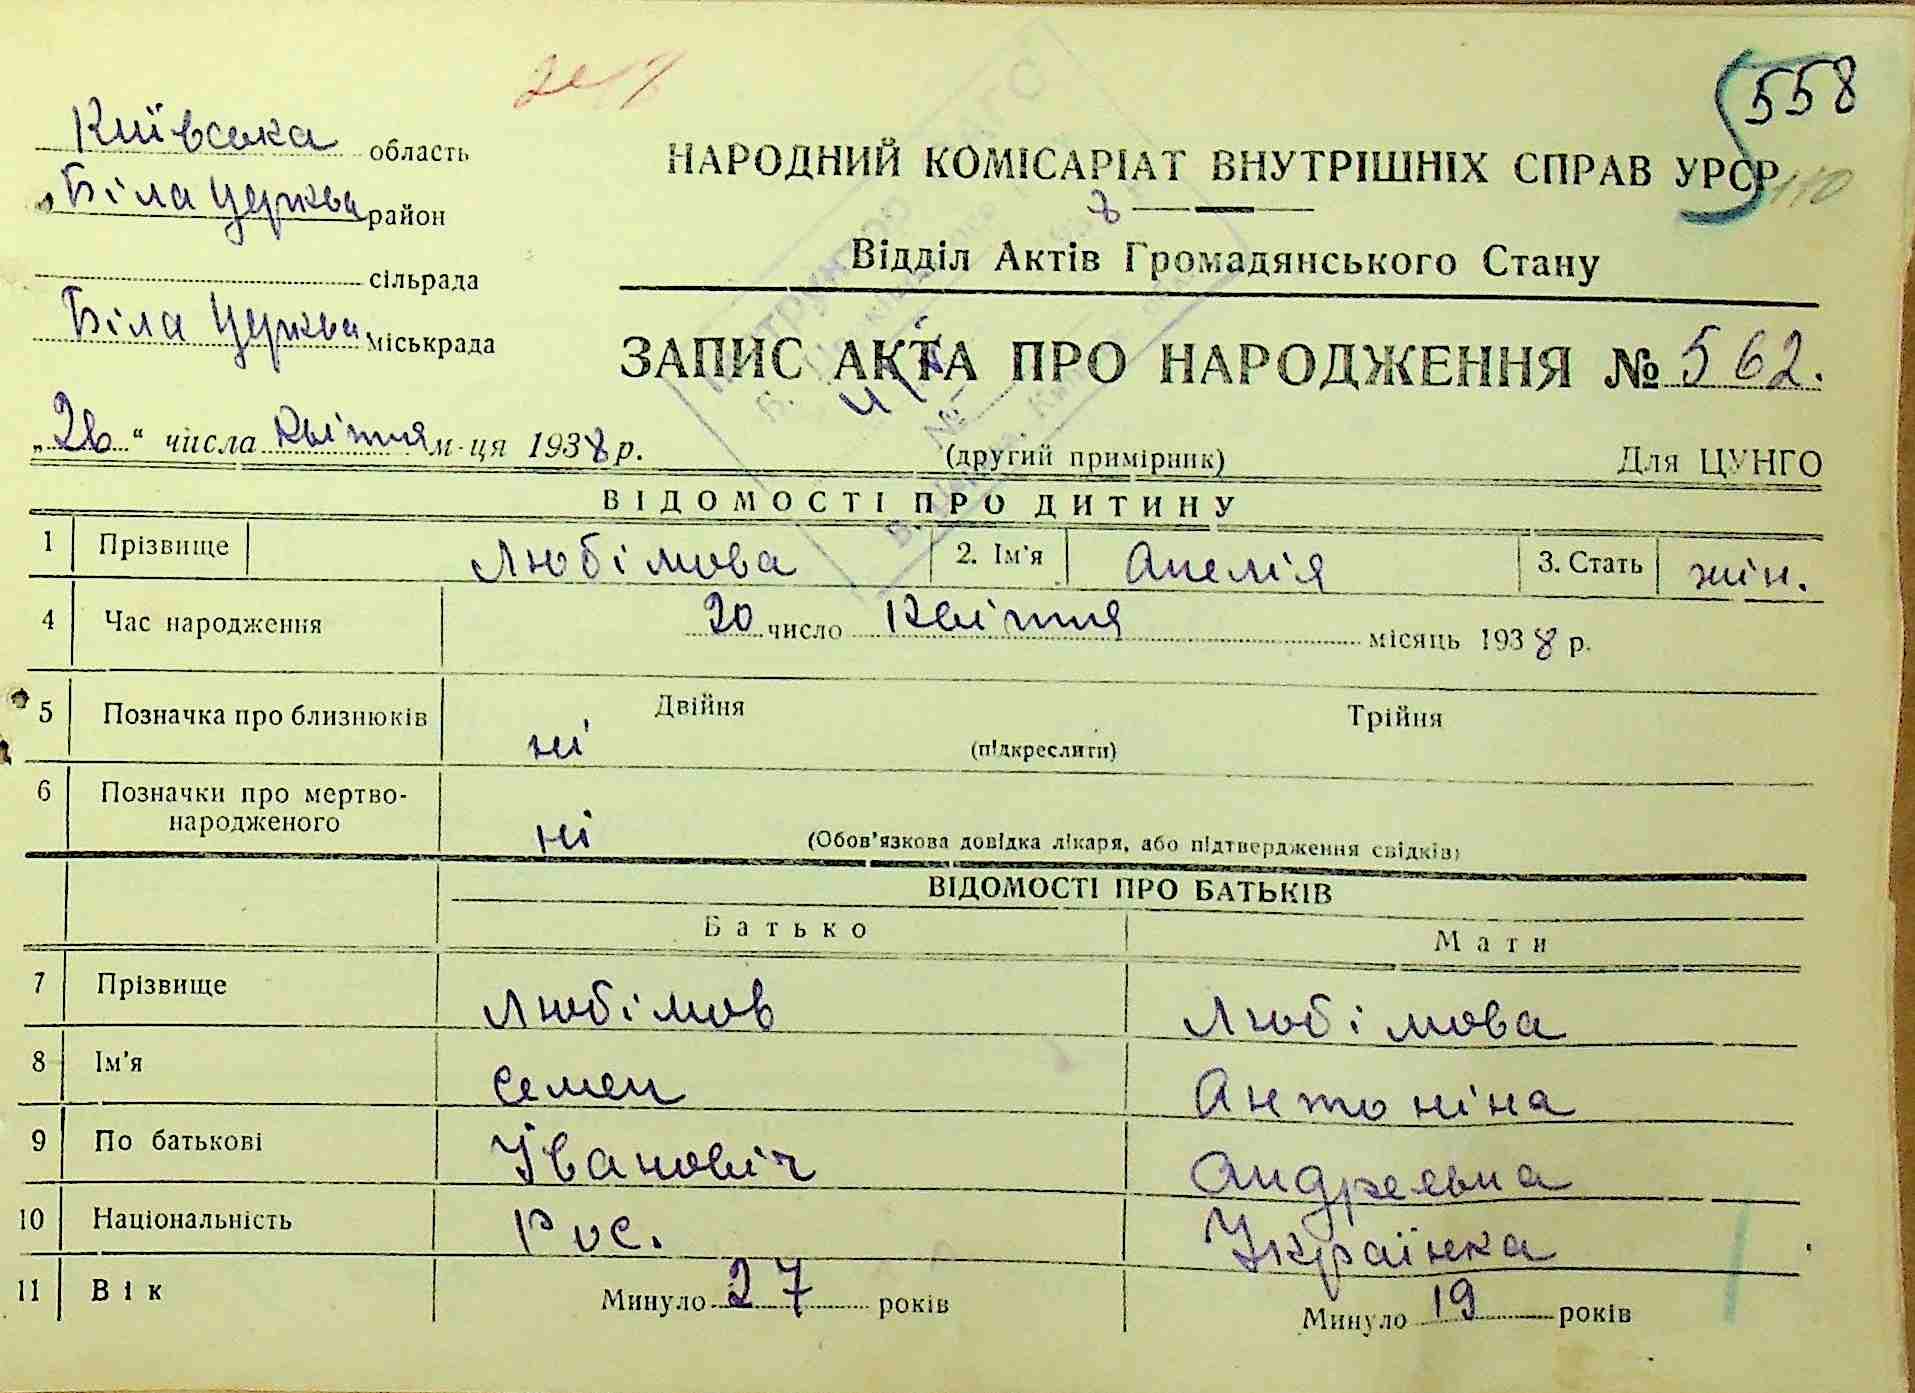 558
Київська область
Біла Церква район
сільрада
Біла Церква міськрада
НАРОДНИЙ КОМІСАРІАТ ВНУТРІШНІХ СПРАВ УРСР
110
Відділ Актів Громадянського Стану
ЗАПИС АКТА ПРО НАРОДЖЕННЯ № 562.
„26“ числа Квітня м-ця 1938 р.
(другий примірник)
Для ЦУНГО
ВІДОМОСТІ ПРО ДИТИНУ
1 Прізвище Любімова 2. Ім'я Анелія 3. Стать жін.
4 Час народження 20 число Квітня місяць 1938 р.
5 Позначка про близнюків ні Двійня Трійня
(підкреслити)
6 Позначки про мертво-
народженого ні (Обов'язкова довідка лікаря, або підтвердження свідків)
ВІДОМОСТІ ПРО БАТЬКІВ
Батько Мати
7 Прізвище Любімов Любімова
8 Ім'я Семен Антоніна
9 По батькові Івановіч Андреевна
10 Національність Рус. Українка
11 Вік Минуло 27 років Минуло 19 років